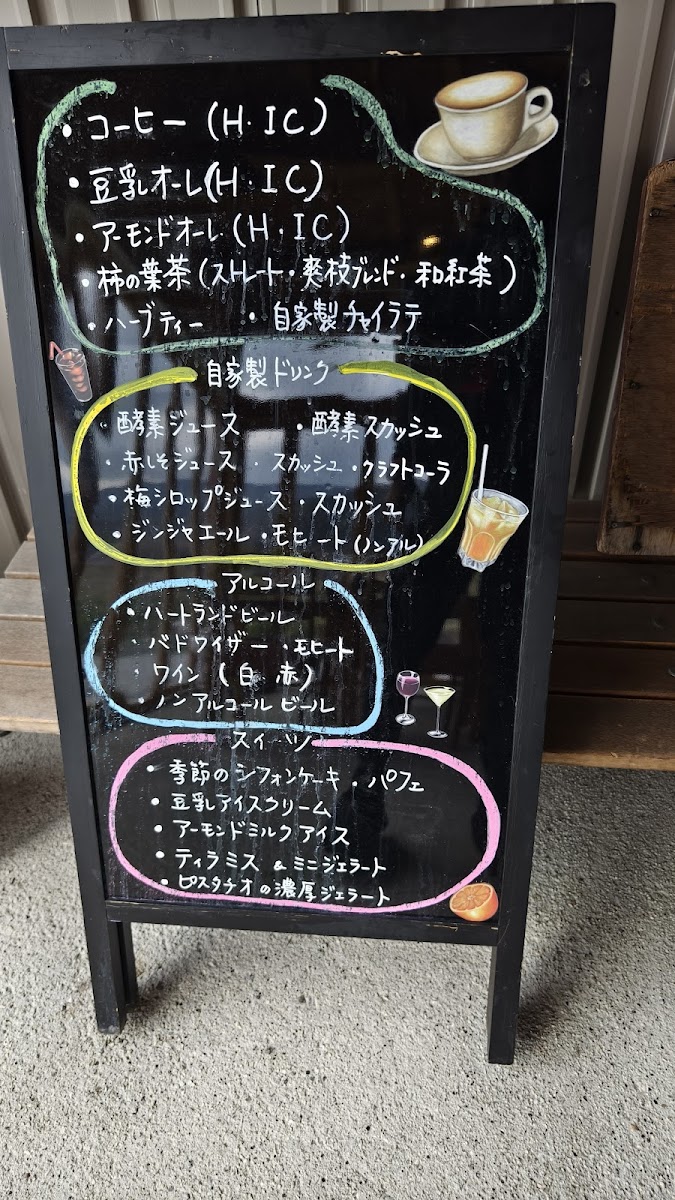 ・コーヒー(H・IC)
・豆乳オーレ(H・IC)
・アーモンドオーレ(H・IC)
・柿の葉茶(ストレート・爽枝ブレンド・和紅茶)
・ハーブティー ・自家製チャイラテ
自家製ドリンク
・酵素ジュース ・酵素スカッシュ
・赤しそジュース ・スカッシュ ・クラフトコーラ
・梅シロップジュース ・スカッシュ
・ジンジャエール ・モヒート(ノンアル)
アルコール
・ハートランドビール
・バドワイザー ・モヒート
・ワイン(白 赤)
・ノンアルコールビール
スイーツ
・季節のシフォンケーキ ・パフェ
・豆乳アイスクリーム
・アーモンドミルクアイス
・ティラミス & ミニジェラート
・ピスタチオの濃厚ジェラート